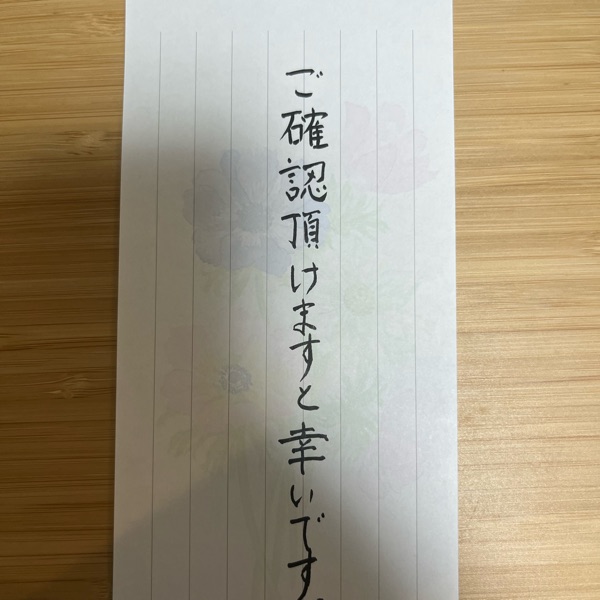 ご確認頂けますと幸いです。